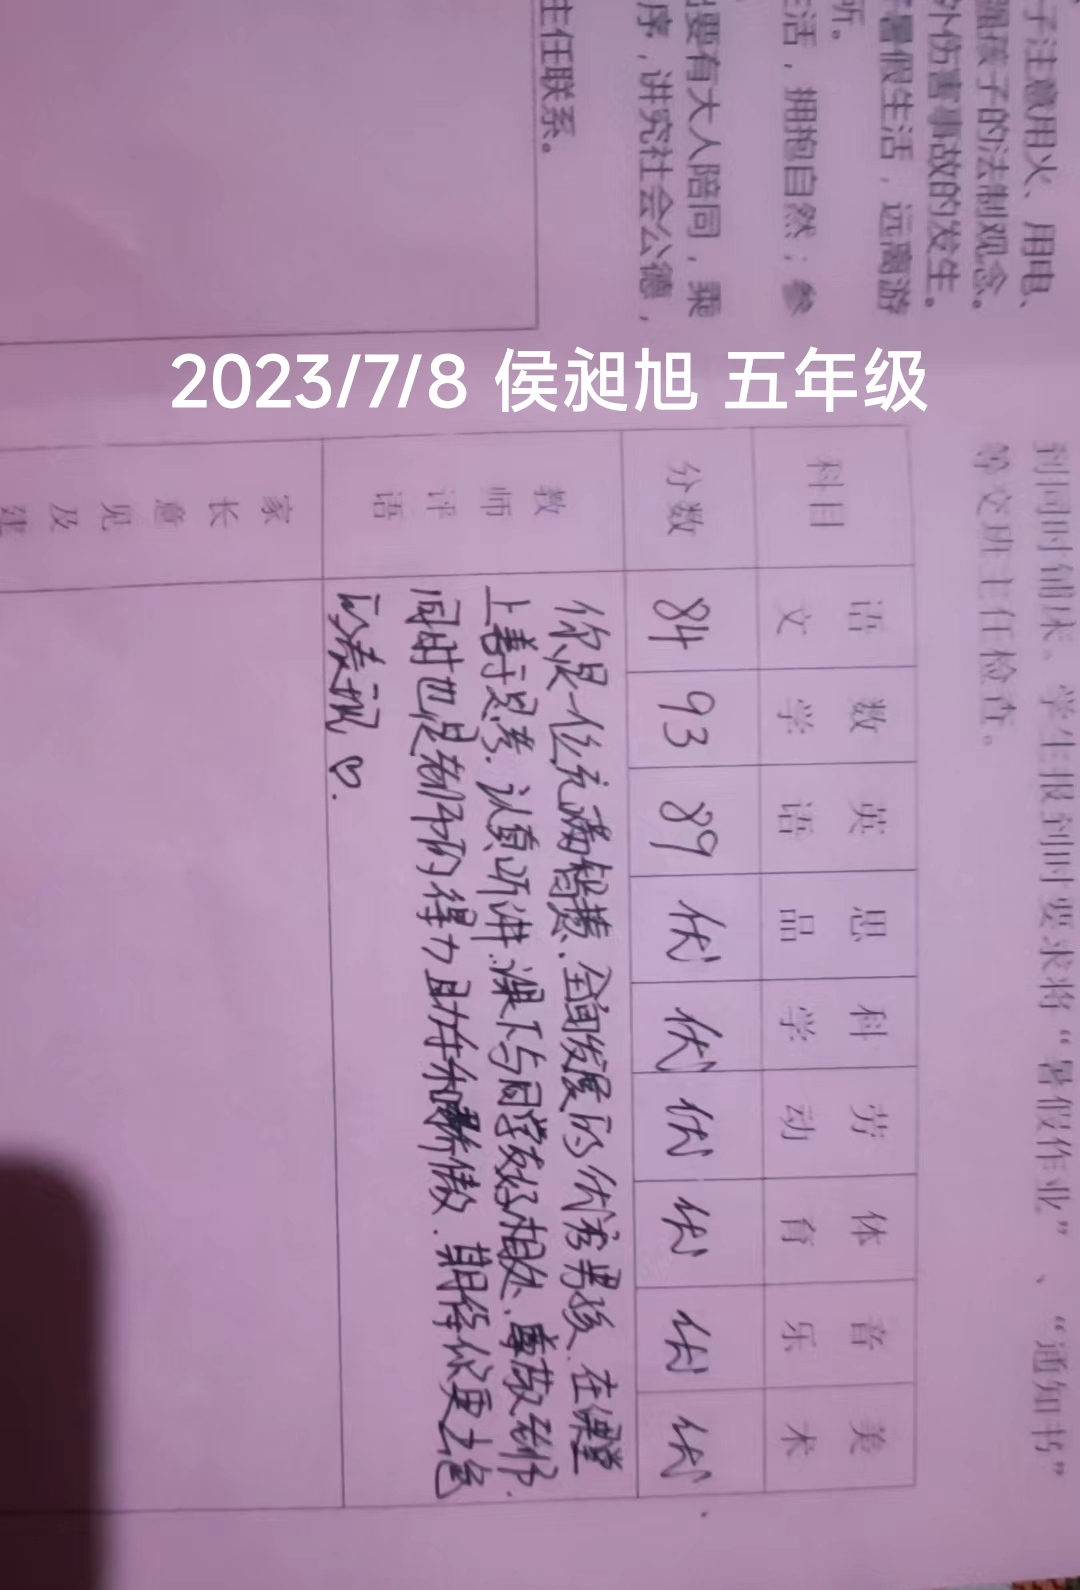 2023/7/8 侯昶旭 五年级
子注意用火、用电、
孩子的法制观念。
外伤害事故的发生。
暑假生活，远离游
所。
活，拥抱自然；参
要有大人陪同，乘
序，讲究社会公德，
主任联系。
到同时铺床、学生报到时要求将“暑假作业”、“通知书”
等交班主任检查。
科目 语文 数学 英语 思品 科学 劳动 体育 音乐 美术
分数 84 93 89 优 优 优 优 优 优
教师评语
你是一位充满智慧、全面发展的优秀男孩.在课堂
上善于思考.认真听讲.课下与同学友好相处.尊敬老师.
同时也是老师的得力助手和骄傲.期待你更出色
的表现♡.
家长意见及建